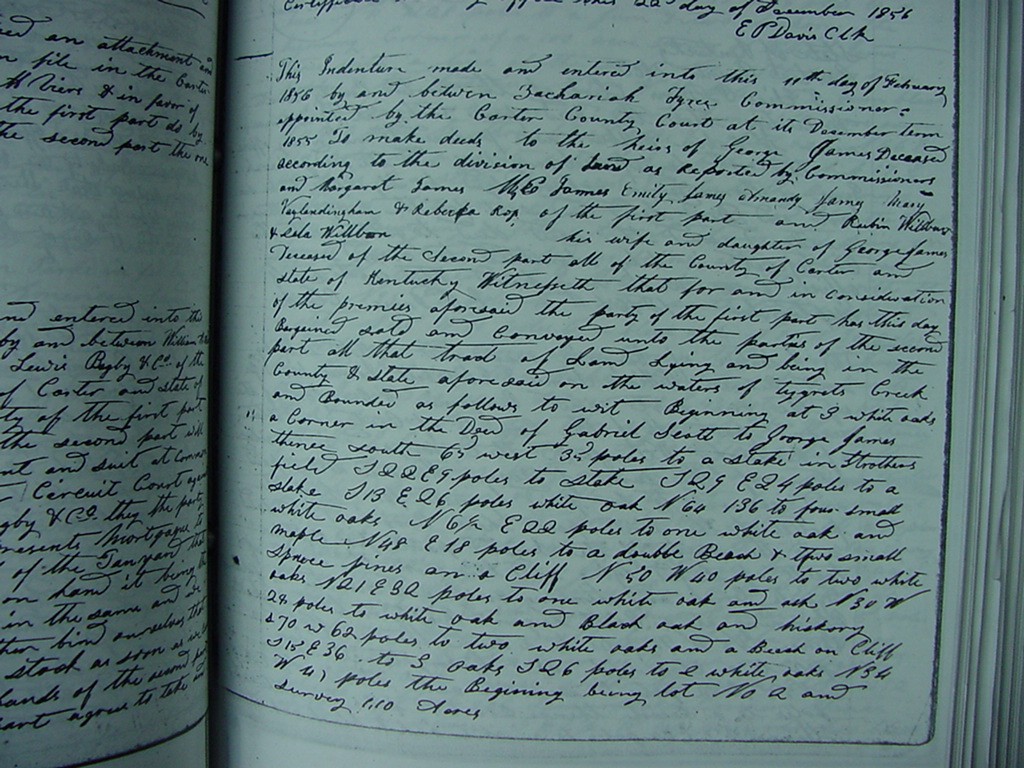 ed an attachment and
n file in the Carter
& in favor of
the first part do by
the second part the
nd entered into the
by and between William
Lewis Bagby & Co. of the
of Carter and state of
ty of the first part
the second part
nt and suit at
Circuit Court
gby & Co. they the
resents Mortgage to
of the Tanyard
on hand it being the
in the same and
then bind ourselves
stock as soon as
hands of the second
agree to take
day of December 1856
E P Davis Clk
This Indenture made and entered into this 11th day of February
1856 by and between Zachariah Tyree Commissioner
appointed by the Carter County Court at its December term
1855 To make deeds to the heirs of George James Deceased
according to the division of Land as Reported by Commissioners
and Margaret James James Emily James Amandy James Mary
Vanlandingham & Rebecka of the first part and Rubin Willburn
& Lela Willburn his wife and daughter of George James
Deceased of the Second part all of the County of Carter and
state of Kentucky Witnesseth that for and in consideration
of the premises aforesaid the party of the first part has this day
Bargained sold and Conveyed unto the parties of the second
part all that tract of Land Lying and being in the
County & State aforesaid on the waters of tygrets Creek
and Bounded as follows to wit Beginning at 3 white oaks
a Corner in the Deed of Gabriel Scott to Jorge James
thence south 65 west 32 poles to a stake in Strothers
field S 22 E 9 poles to stake S 29 E 24 poles to a
stake S 13 E 26 poles white oak N 64 136 to four small
white oaks N E 22 poles to one white oak and
maple N 48 E 18 poles to a double Beach & small
spruce pines on a Cliff N 50 W 40 poles to two white
oaks N 21 E 32 poles to one white oak and ash N 30 W
28 poles to white oak and Black oak and hickory
S 70 W 62 poles to two white oaks and a Beech on Cliff
S 15 E 36 to 3 oaks S 26 poles to 2 white oaks N 54
W 41 poles the Begining being lot No 2 and
survey 110 Acres